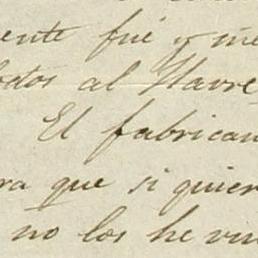 ente fué y me
odos al Havre
El fabrican
ra que si quier
no los he vu